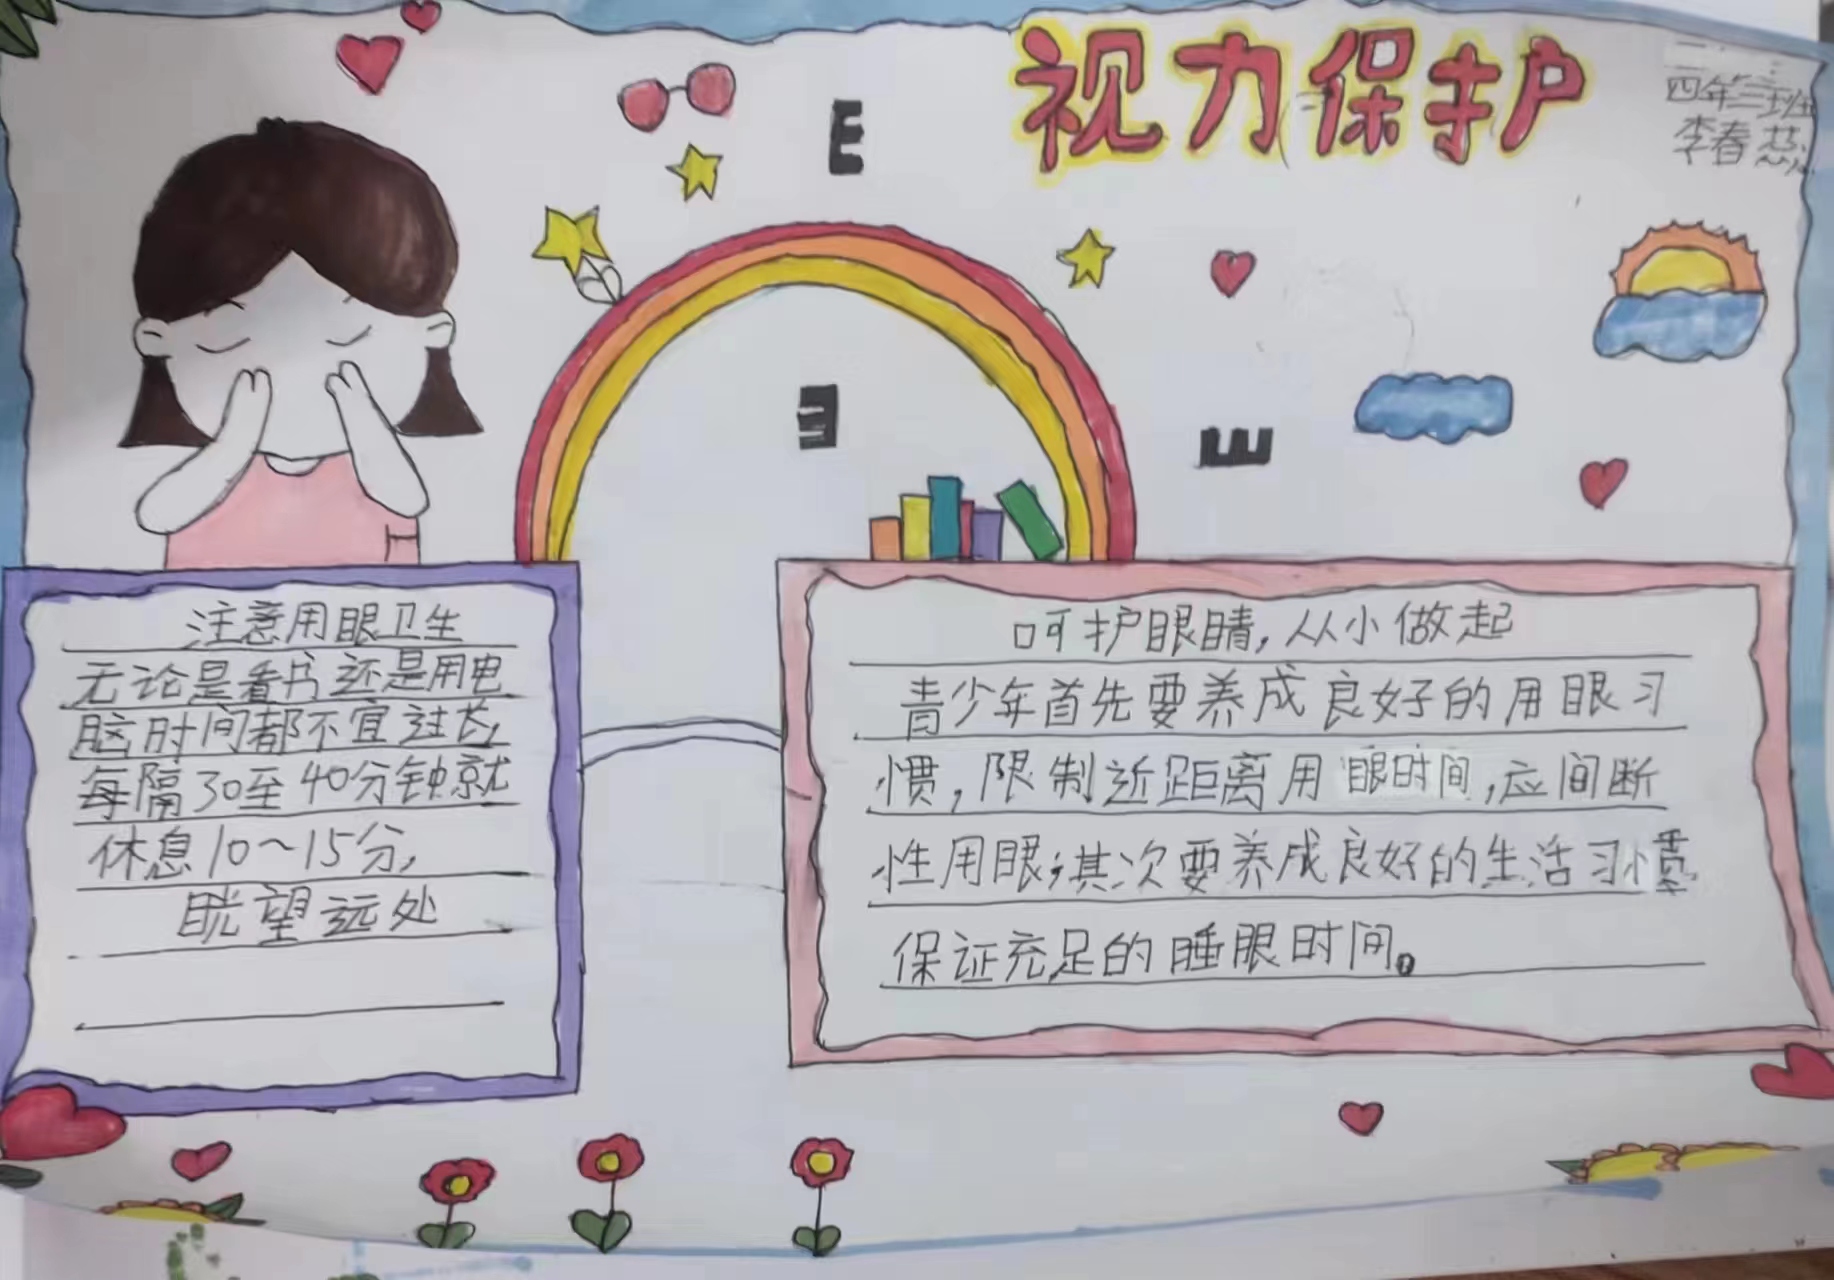 视力保护
四年三班
李春燕
E
E
E
注意用眼卫生
无论是看书还是用电
脑时间都不宜过长,
每隔30至40分钟就
休息10~15分,
眺望远处
呵护眼睛,从小做起
青少年首先要养成良好的用眼习
惯,限制近距离用眼时间,应间断
性用眼;其次要养成良好的生活习惯
保证充足的睡眠时间。